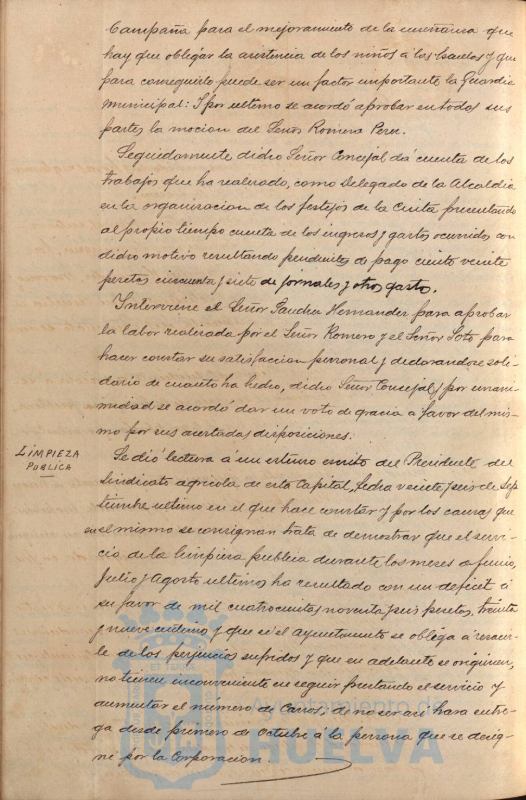 Campaña para el mejoramiento de la enseñanza que
hay que obligar la asistencia de los niños á las Escuelas y que
para conseguirlo puede ser un factor importante la Guardia
municipal: Y por ultimo se acordó aprobar en todas sus
partes la mocion del Señor Romero Pere.
Seguidamente dicho Señor Concejal dá cuenta de los
trabajos que ha realizado, como Delegado de la Alcaldia
en la organizacion de los festejos de la Cinta presentando
al propio tiempo cuenta de los ingresos y gastos ocurridos con
dicho motivo resultando pendientes de pago ciento veinte
pesetas cincuenta y siete de jornales y otros gastos.
Interviene el Señor Sanchez Hernandez para aprobar
la labor realizada por el Señor Romero y el Señor Soto para
hacer constar su satisfaccion personal y declarandose soli-
dario de cuanto ha hecho, dicho Señor Concejal, y por unani-
midad se acordó dar un voto de gracia á favor del mis-
mo por sus acertadas disposiciones.
LIMPIEZA
PUBLICA
Se dió lectura á un extenso escrito del Presidente del
Sindicato agricola de esta Capital, fecha veinte y seis de Sep-
tiembre ultimo en el que hace constar y por las causas que
en el mismo se consignan trata de demostrar que el servi-
cio de la limpieza publica durante los meses de Junio,
Julio y Agosto ultimos ha resultado con un deficit á
su favor de mil cuatrocientas noventa y seis pesetas, treinta
y nueve centimos y que si el ayuntamiento se obliga á resarcir-
le de los perjuicios sufridos y que en adelante se originen,
no tienen inconveniente en seguir prestando el servicio y
aumentar el número de Carros, de no ser asi hara entre-
ga desde primero de Octubre á la persona que se desig-
ne por la Corporacion.
Ayuntamiento de
HUELVA